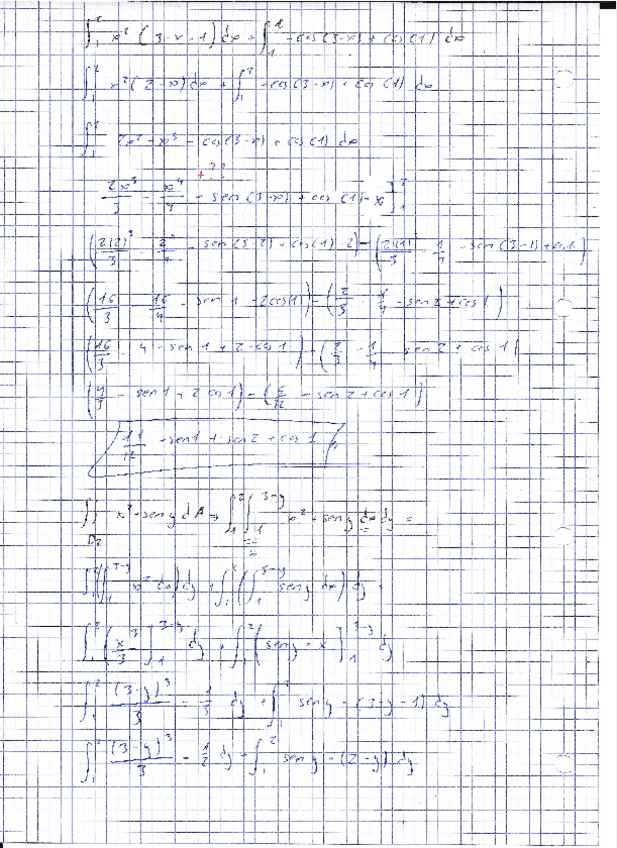 ∫₁² x² (3-x-1) dx + ∫₁² -cos(3-x) + cos(1) dx
∫₁² x² (2-x) dx + ∫₁² -cos(3-x) + cos(1) dx
∫₁² 2x² - x³ - cos(3-x) + cos(1) dx
+ ??
2x³/3 - x⁴/4 - sen(3-x) + cos(1)·x ]₁²
(2(2)³/3 - 2⁴/4 - sen(3-2) + cos(1)·2) - (2(1)³/3 - 1/4 - sen(3-1) + cos 1)
(16/3 - 16/4 - sen 1 + 2cos 1) - (2/3 - 1/4 - sen 2 + cos 1)
(16/3 - 4 - sen 1 + 2·cos 1) - (2/3 - 1/4 - sen 2 + cos 1)
(4/3 - sen 1 + 2 cos 1) - (5/12 - sen 2 + cos 1)
11/12 - sen 1 + sen 2 + cos 1
∬ x² + sen y dA ⇒ ∫₁² ∫₁^(3-y) x² + sen y dx dy =
D₂ x
∫₁² (∫₁^(3-y) x² dx) dy + ∫₁² (∫₁^(3-y) sen y dx) dy =
∫₁² (x³/3 ]₁^(3-y) dy + ∫₁² (sen y · x ]₁^(3-y) dy
∫₁² (3-y)³/3 - 1/3 dy + ∫₁² sen y · (3-y-1) dy
∫₁² (3-y)³/3 - 1/2 dy + ∫₁² sen y · (2-y) dy